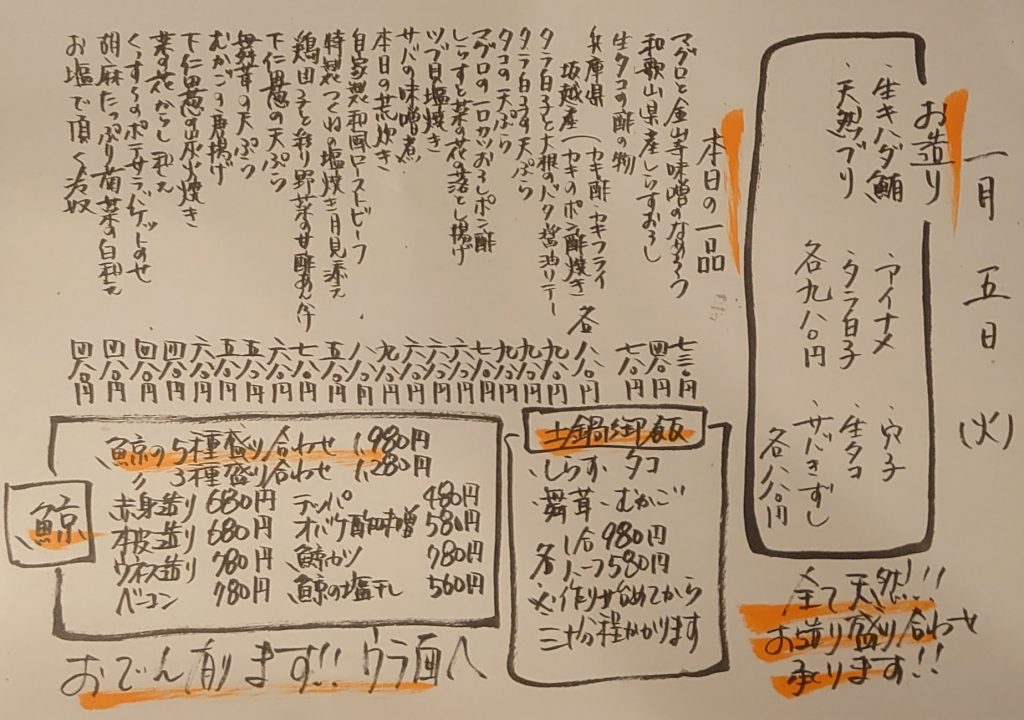 一月五日(火)
お造り
・生キハダ鮪 ・アイナメ ・穴子
・天然ブリ ・タラ白子 ・生タコ
各九八〇円 ・サバきずし
各八八〇円
全て天然!!
お造り盛り合わせ
承ります!!
本日の一品
マグロと金山寺味噌のなめろう 七三〇円
和歌山県産しらすおろし 四八〇円
生タコの酢の物 七八〇円
兵庫県 (カキ酢・カキフライ
坂越産 (カキのポン酢焼き 各八八〇円
タラ白子と大根のバタ醤油ソテー 九八〇円
タラ白子の天ぷら 九八〇円
タコの天ぷら 九八〇円
マグロの一口カツおろしポン酢 七八〇円
しらすと菜の花の落とし揚げ 六八〇円
ツブ貝塩焼き 六八〇円
サバの味噌煮 六八〇円
本日の荒炊き 九八〇円
自家製和風ローストビーフ 八八〇円
特製つくねの塩焼き月見添え 五八〇円
鶏団子と彩り野菜の甘酢あん付 七八〇円
下仁田葱の天ぷら 六八〇円
舞茸の天ぷら 五八〇円
むかごの唐揚げ 五八〇円
下仁田葱の炭火焼き 六八〇円
菜の花からし和え 四八〇円
くずきりのポテサラバケットのせ 四八〇円
胡麻たっぷり菊菜の白和え 四八〇円
お塩で頂く冷奴 四八〇円
土鍋御飯
・しらす・タコ
・舞茸・むかご
各 1合980円
ハーフ580円
※作り始めてから
三十分程かかります
鯨
鯨の5種盛り合わせ 1,980円
〃 3種盛り合わせ 1,280円
赤身造り 680円 テッパ 480円
本皮造り 680円 オバケ酢味噌 580円
ウネス造り 780円 鯨カツ 780円
ベーコン 780円 鯨の塩干し 560円
おでん有ります!!ウラ面へ